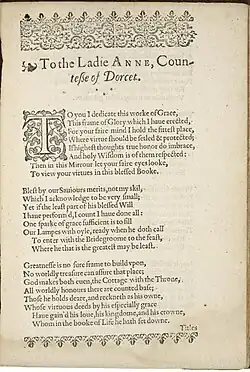 To the Ladie ANNE, Coun-
tesse of Dorcet.
TO you I dedicate this worke of Grace,
This frame of Glory which I have erected,
For your faire mind I hold the fittest place,
Where virtue should be setled & protected;
If highest thoughts true honor do imbrace,
And holy Wisdom is of them respected:
Then in this Mirrour let your faire eyes looke,
To view your virtues in this blessed Booke.
Blest by our Saviours merits, not my skil,
Which I acknowledge to be very small;
Yet if the least part of his blessed Will
I have perform'd, I count I have done all:
One sparke of grace sufficient is to fill
Our Lampes with oyle, ready when he doth call
To enter with the Bridegroome to the feast,
Where he that is the greatest may be least.
Greatnesse is no sure frame to build upon,
No worldly treasure can assure that place;
God makes both even, the Cottage with the Throne,
All worldly honours there are counted base;
Those he holds deare, and reckneth as his owne,
Whose virtuous deeds by his especiall grace
Have gain'd his love, his kingdome, and his crowne,
Whom in the booke of Life he hath set downe.
Titles